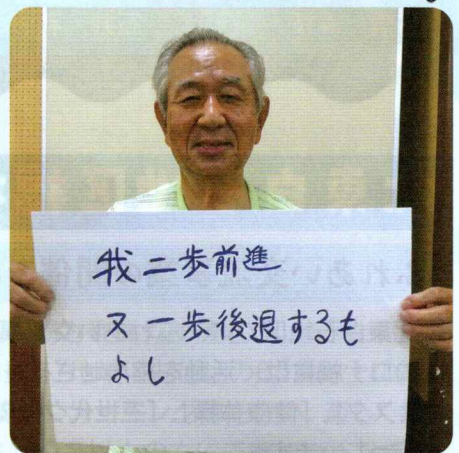 我二歩前進
又一歩後退するも
よし